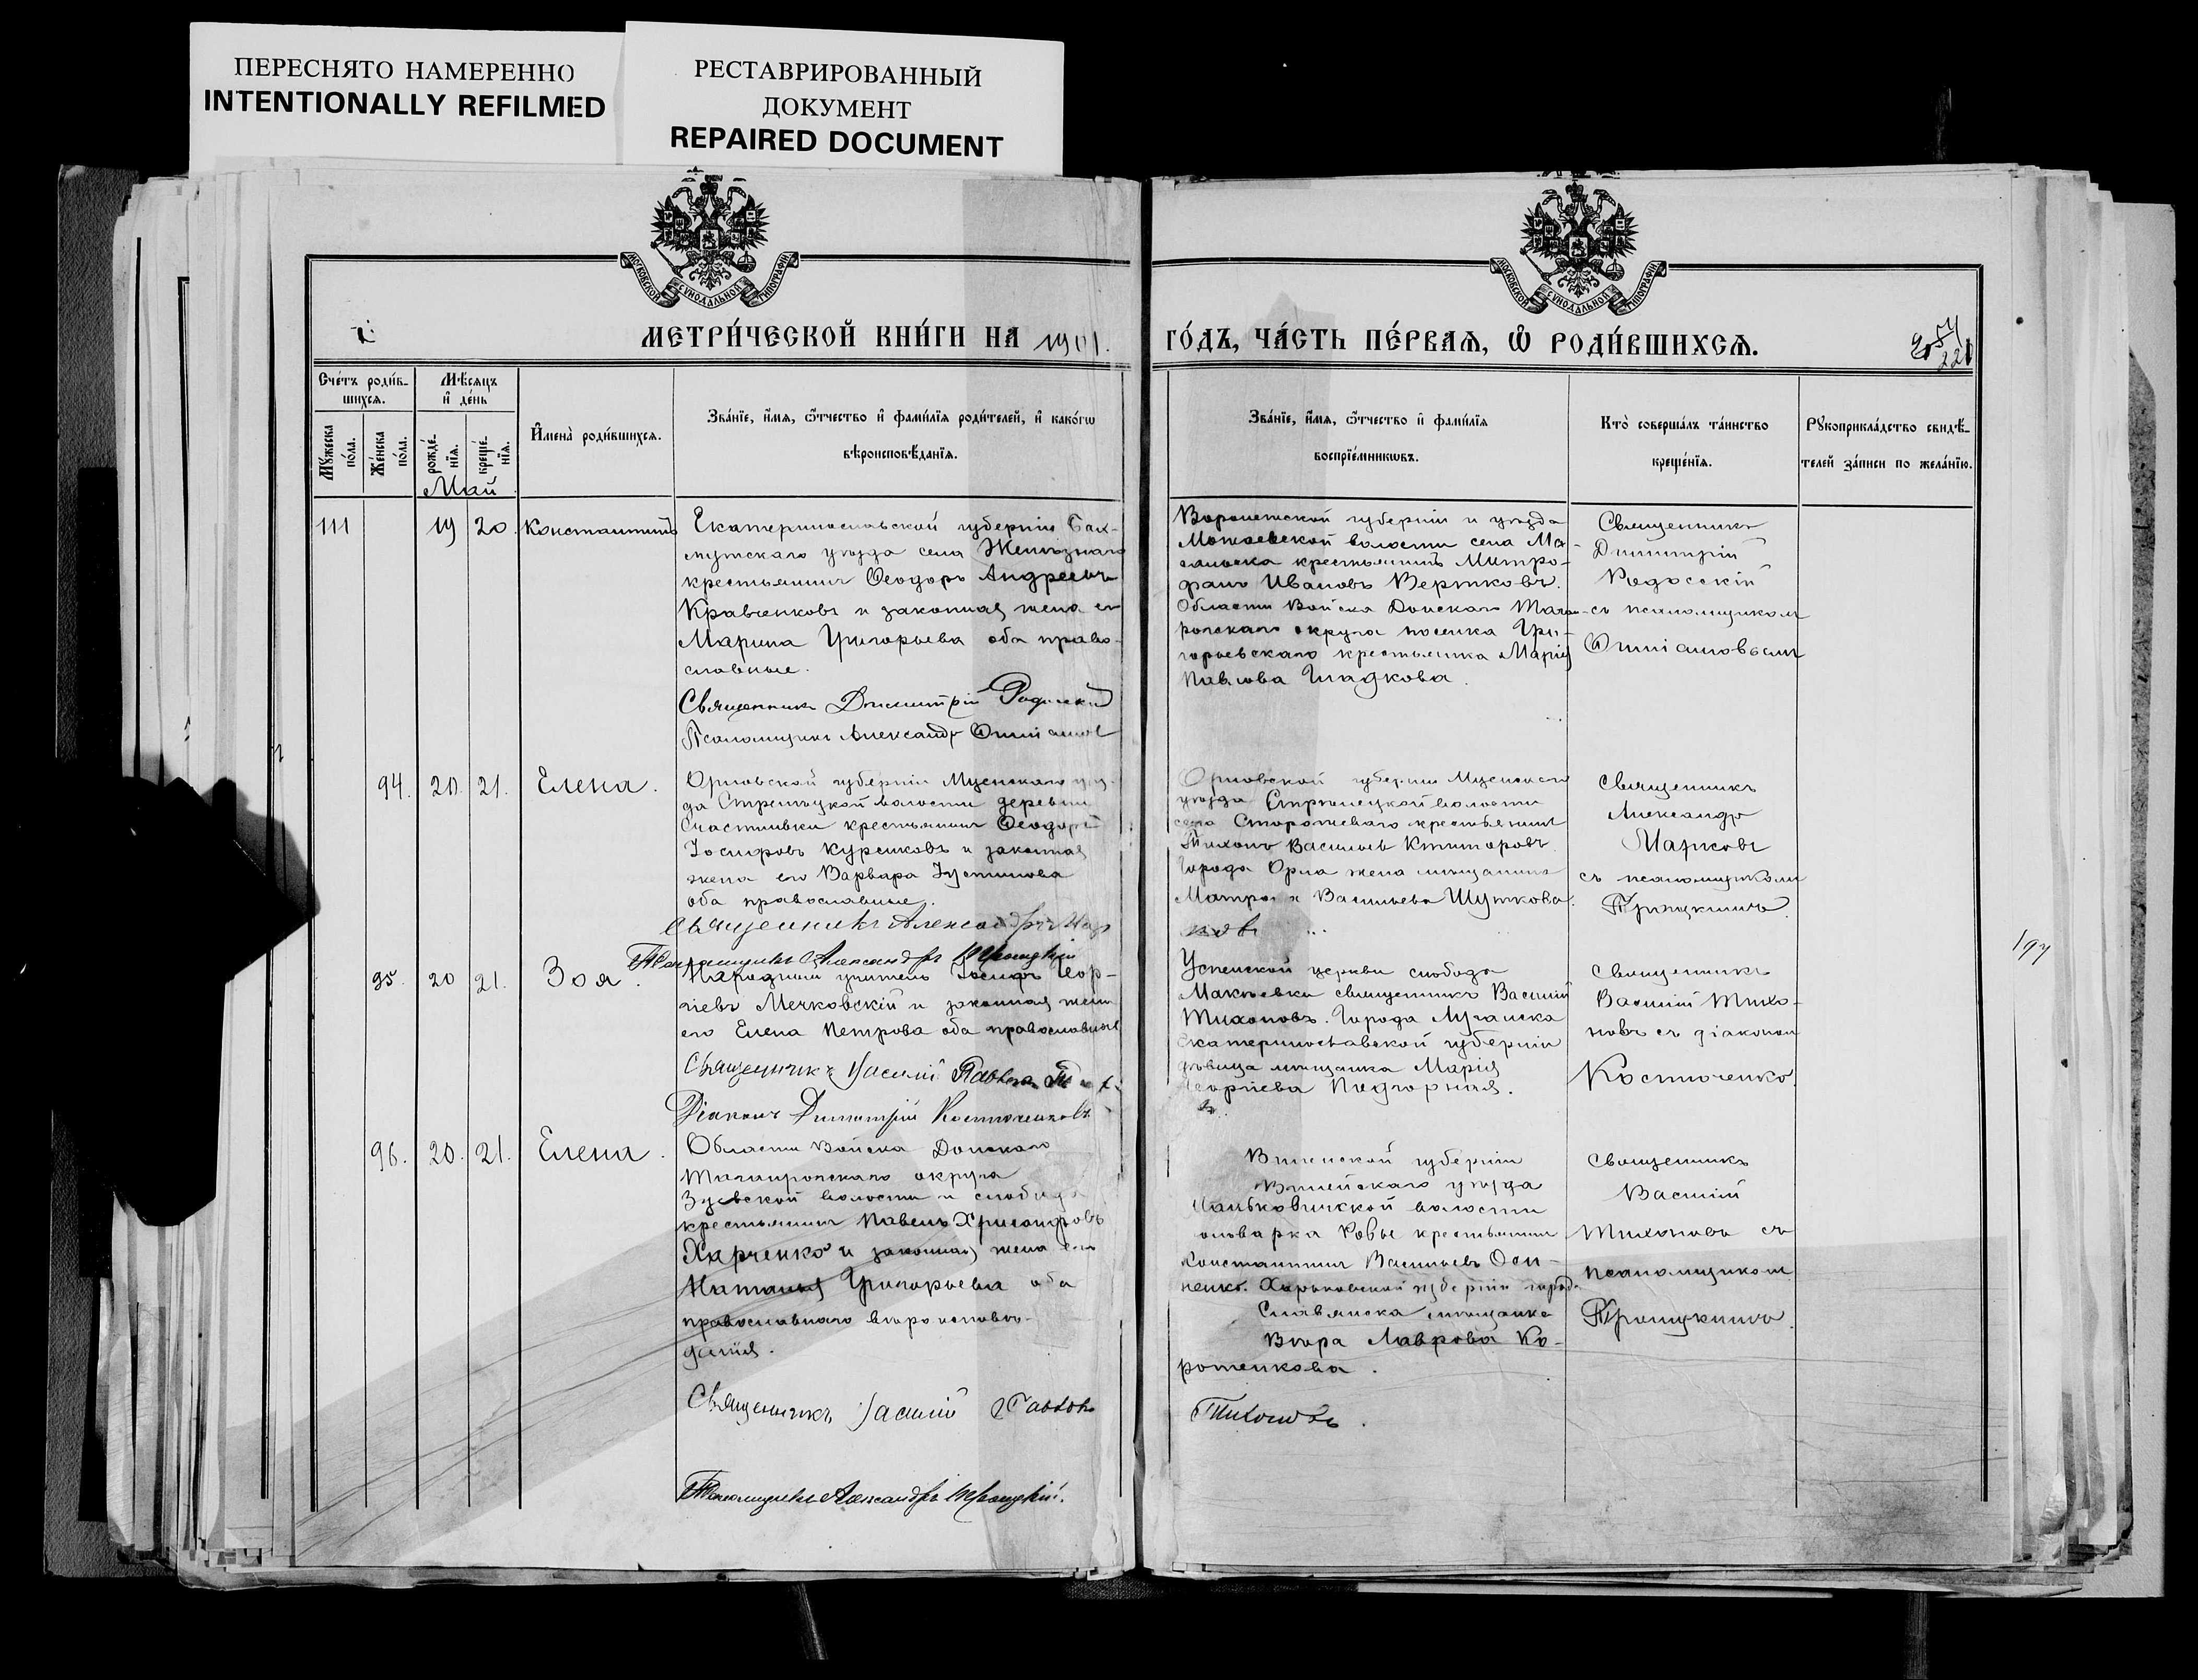 ПЕРЕСНЯТО НАМЕРЕННО
INTENTIONALLY REFILMED
РЕСТАВРИРОВАННЫЙ
ДОКУМЕНТ
REPAIRED DOCUMENT
МОСКОВСКОЙ СѴНОДАЛЬНОЙ ТИПОГРАФІИ
МОСКОВСКОЙ СѴНОДАЛЬНОЙ ТИПОГРАФІИ
МЕТРИ́ЧЕСКОЙ КНИ́ГИ НА 1901.
ГО́ДЪ, ЧА́СТЬ ПЕ́РВАѦ, Ѡ҆ РОДИ́ВШИХСѦ.
Сче́тъ роди́в-
шихсѧ.
Мꙋ́жеска по́ла.
Же́нска по́ла.
Мѣ́сѧцъ
и҆ де́нь
рожде́-нїѧ.
креще́-нїѧ.
И҆мена̀ роди́вшихсѧ.
Зва́нїе, и҆́мѧ, ѻ҆́тчество и҆ фами́лїѧ роди́телей, и҆ како́гѡ
вѣроисповѣ́данїѧ.
Зва́нїе, и҆́мѧ, ѻ҆́тчество и҆ фами́лїѧ
воспрїе́мникѡвъ.
Кто̀ соверша́лъ та́инство
креще́нїѧ.
Рꙋкоприкла́дство свидѣ́-
телей за́писи по жела́нїю.
Май
111
19 20.
Константинъ
Екатеринославской губерніи Бах-
мутскаго уѣзда села Желѣзнаго
крестьянинъ Ѳеодоръ Андреевъ
Кравченковъ и законная жена его
Марина Григорьева оба право-
славные.
Священникъ Димитрій
Псаломщикъ Александръ
Воронежской губерніи и уѣзда
волости села
крестьянинъ Митро-
фанъ Ивановъ Вертковъ.
Области Войска Донскаго Таган-
рогскаго округа поселка Гри-
горьевскаго крестьянка Марія
Павлова Гладкова.
Священникъ
Димитрій
съ псаломщикомъ
94.
20. 21.
Елена.
Орловской губерніи Мценскаго уѣз-
да Стрѣлецкой волости деревни
Счастливки крестьянинъ Ѳеодоръ
Іосифовъ Курсиковъ и законная
жена его Варвара Іустинова
оба православные.
Священникъ Александръ Мар
Псаломщикъ Александръ
Орловской губерніи Мценскаго
уѣзда Стрѣлецкой волости
села Сторожеваго крестьянинъ
Тихонъ Васильевъ Ктиторовъ
Города Орла жена мѣщанина
Матрона Васильева Шуткова.
ковъ
Священникъ
Александръ
Марковъ
съ псаломщикомъ
95.
20 21.
Зоя.
Народный учитель Іосифъ Геор-
гіевъ Мечковскій и законная жена
его Елена Петрова оба православные
Священникъ Василій Павловъ
Діаконъ Димитрій Костюченковъ
Успенской церкви слободы
Макѣевки священникъ Василій
Тихоновъ. Города Луганска
Екатеринославской губерніи
дѣвица мѣщанка Марія
Георгіева Подгорная.
Священникъ
Василій Тихо-
новъ съ діакономъ
Костюченко.
96.
20. 21.
Елена.
Области Войска Донскаго
Таганрогскаго округа
Зуевской волости и слободы
крестьянинъ Павелъ Хрисанфовъ
Харченко и законная жена его
Наталья Григорьева оба
православнаго вѣроисповѣ-
данія.
Священникъ Василій Павловъ
Псаломщикъ Александръ
Виленской губерніи
Вилейскаго уѣзда
волости
крестьянинъ
Константинъ Васильевъ Оси-
пенко. Харьковской губерніи города
Славянска мѣщанка
Вѣра Лаврова Ко-
ротенкова.
Тихоновъ.
Священникъ
Василій
Тихоновъ съ
псаломщикомъ